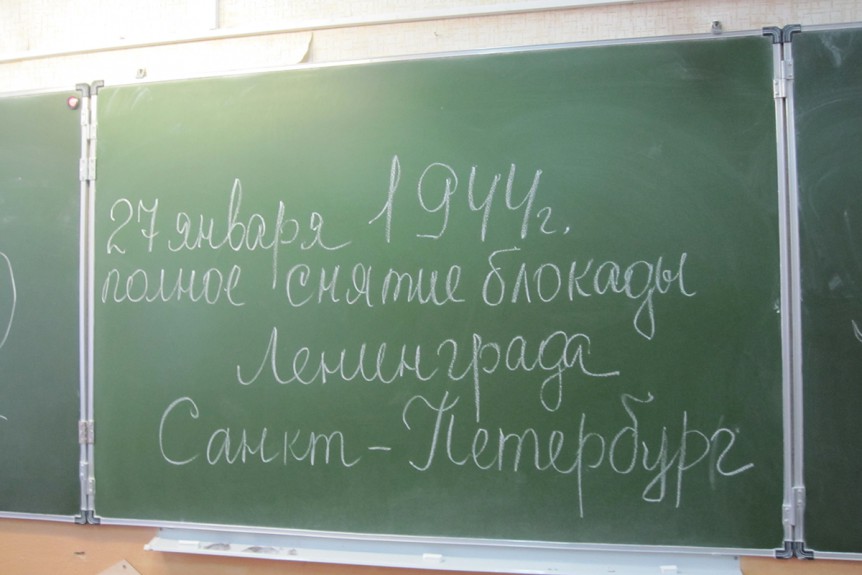 27 января 1944г.
полное снятие блокады
Ленинграда
Санкт-Петербург